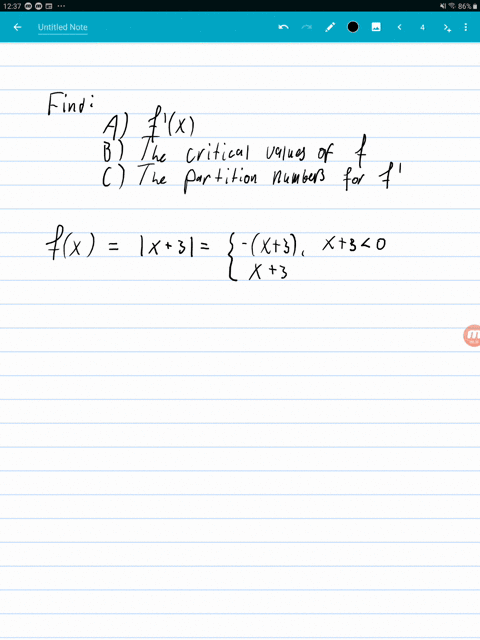 12:37 86%
Untitled Note 4
Find:
A) f'(x)
B) The critical values of f
C) The partition numbers for f'
f(x) = |x+3| = { -(x+3), x+3<0
x+3